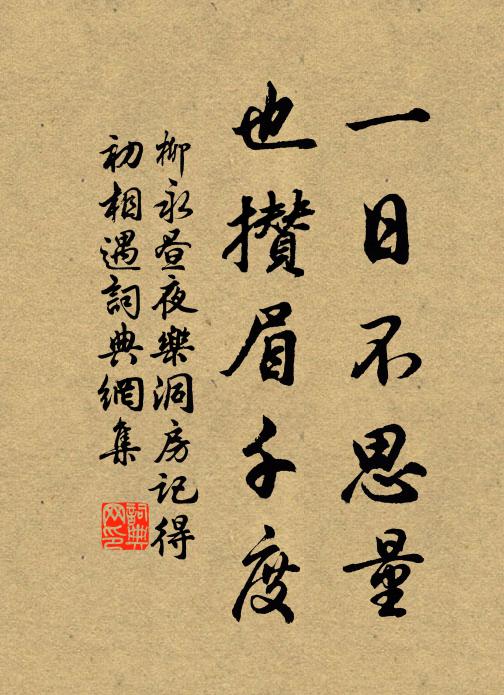 一日不思量
也攢眉千度
柳永晝夜樂洞房記得
初相遇詞典網集
詞典
网印